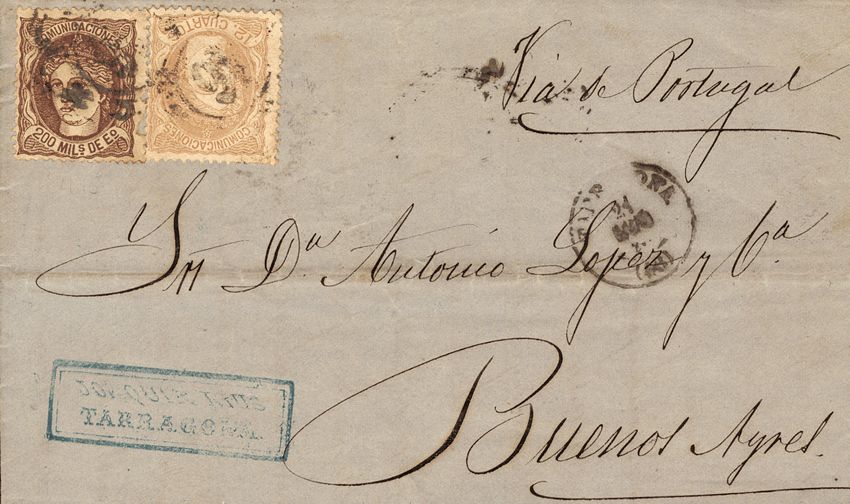 COMUNICACIONES
200 MILS DE EO
12 CUARTOS
COMUNICACIONES
Via de Portugal
21
Srs Dn Antonio Lopez y Ca
TARRAGONA.
Buenos Ayres.